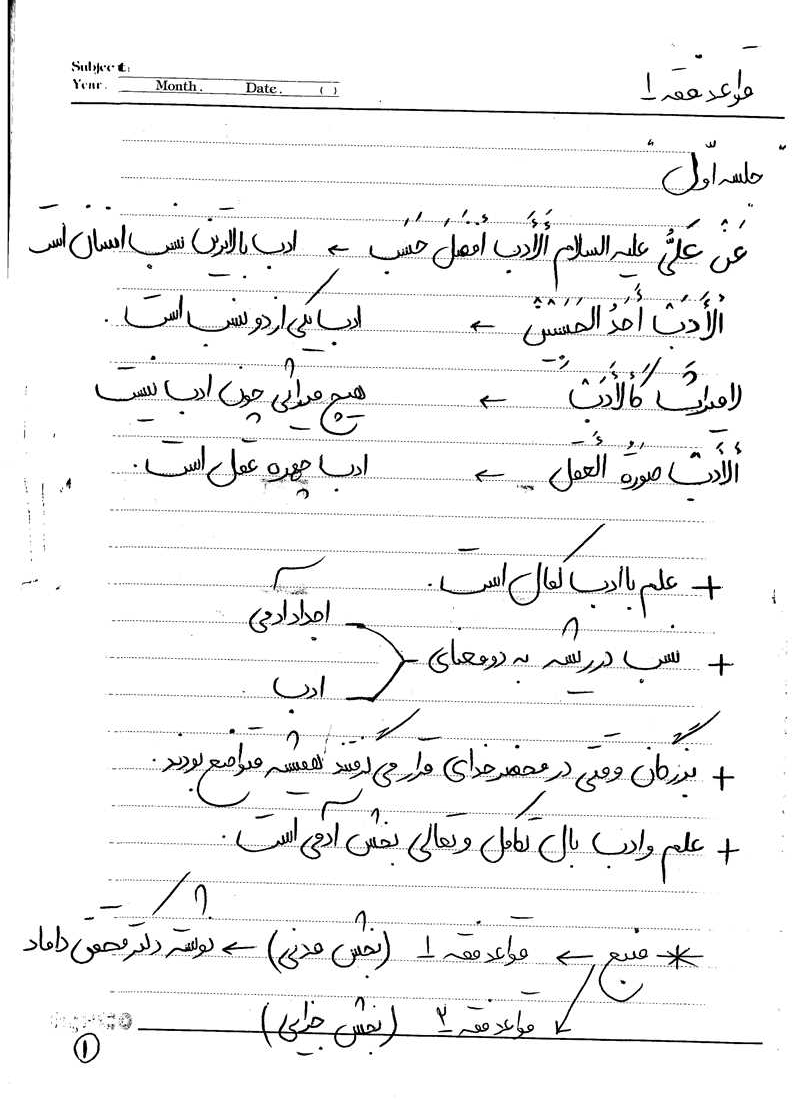 Subject:
Year. Month. Date. ( )
قواعد فقه ۱
جلسه اوّل
عَنْ عَلیٍّ علیه السلام اَلْأَدب أفضَلُ حَسَب ← ادب بالاترین نسب انسان است
اَلْأَدَبُ أَحَدُ الحَسَبَیْنِ ← ادب یکی از دو نسب است.
لا میراثَ کَالْأَدَبِ ← هیچ میراثی چون ادب نیست
اَلْأَدَبُ صورَةُ العَقل ← ادب چهره عقل است.
+ علم با ادب کمال است.
+ نسب در ریشه به دو معنای
اجداد آدمی
ادب
+ بزرگان وقتی در محضر خدای قرار می گرفتند همیشه متواضع بودند.
+ علم و ادب بال تکامل و تعالی بخش آدمی است.
* منبع ← قواعد فقه ۱ (بخش مدنی) ← نوشته دکتر محقق داماد
قواعد فقه ۲ (بخش جزایی)
۱